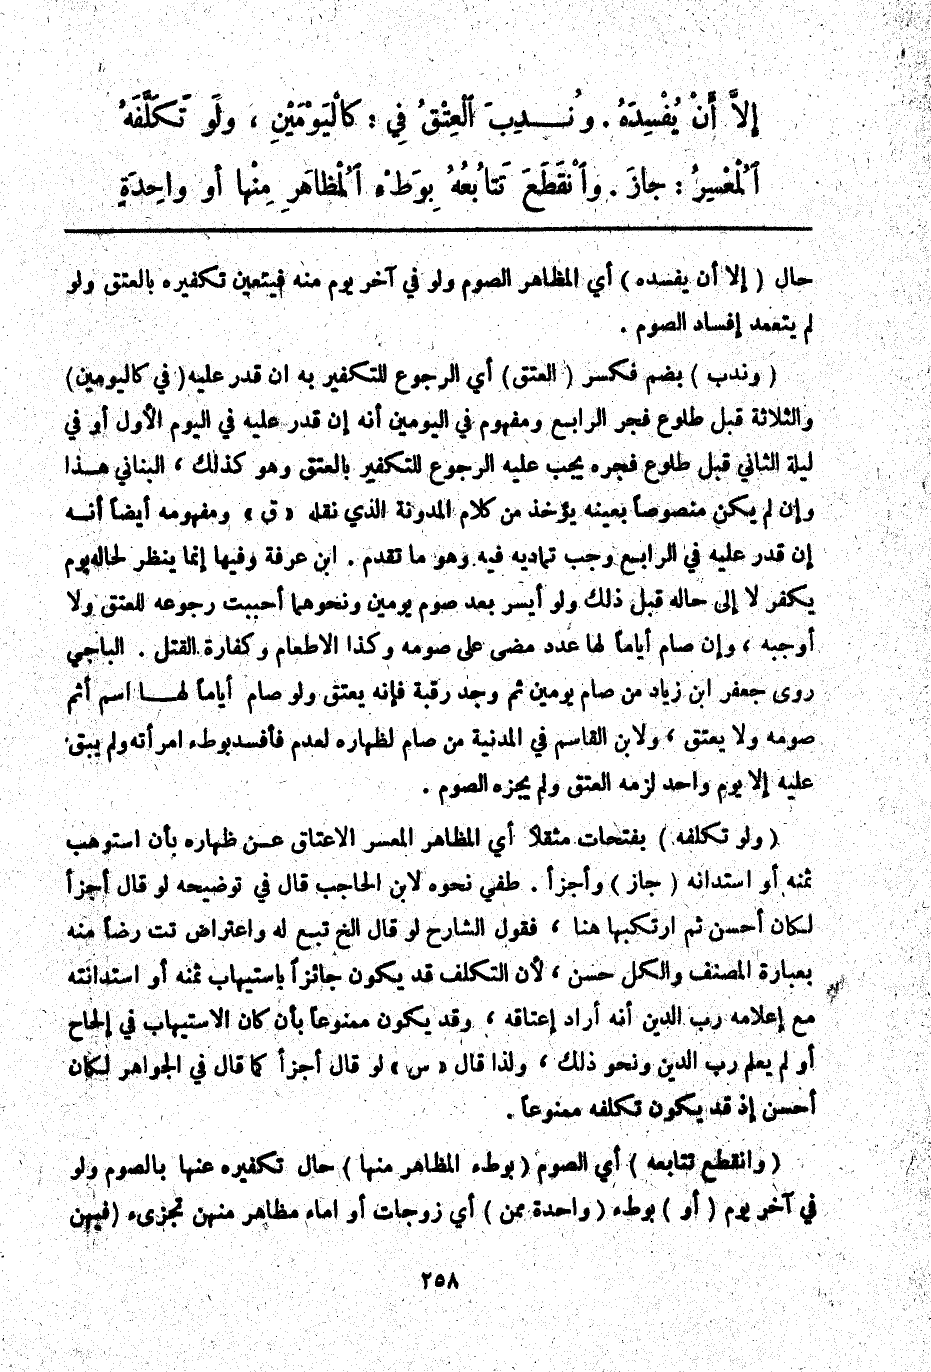 إِلاَّ أَنْ يُفْسِدَهُ . وَنُـــدِبَ ٱلْعِتْقُ فِي : كَالْيَوْمَيْنِ ، ولَو تَكَلَّفَهُ
ٱلْمُعْسِرُ : جازَ . وٱنْقَطَعَ تَتَابُعُهُ بِوَطْءِ ٱلْمُظاهَرِ مِنْها أو واحِدَةٍ
حال ( إلا أن يفسده ) أي المظاهر الصوم ولو في آخر يوم منه فيتعين تكفيره بالعتق ولو
لم يتعمد إفساد الصوم .
( وندب ) بضم فكسر ( العتق ) أي الرجوع للتكفير به ان قدر عليه ( في كاليومين )
والثلاثة قبل طلوع فجر الرابع ومفهوم في اليومين أنه إن قدر عليه في اليوم الأول أو في
ليلة الثاني قبل طلوع فجره يجب عليه الرجوع للتكفير بالعتق وهو كذلك ، البناني هـذا
وإن لم يكن منصوصاً بعينه يؤخذ من كلام المدونة الذي نقله « ق » ومفهومه أيضاً أنـه
إن قدر عليه في الرابع وجب تماديه فيه وهو ما تقدم . ابن عرفة وفيها إنما ينظر لحاله يوم
يكفر لا إلى حاله قبل ذلك ولو أيسر بعد صوم يومين ونحوهما أحببت رجوعه للعتق ولا
أوجبه ، وإن صام أياماً لها عدد مضى على صومه وكذا الاطعام وكفارة القتل . الباجي
روى جعفر ابن زياد من صام يومين ثم وجد رقبة فإنه يعتق ولو صام أياماً لهـــا اسم أتم
صومه ولا يعتق ، ولابن القاسم في المدنية من صام لظهاره لعدم فأفسد بوطء امرأته ولم يبق
عليه إلا يوم واحد لزمه العتق ولم يجزه الصوم .
( ولو تكلفه ) بفتحات مثقلاً أي المظاهر المعسر الاعتاق عـن ظهاره بأن استوهب
ثمنه أو استدانه ( جاز ) وأجزأ . طفي نحوه لابن الحاجب قال في توضيحه لو قال أجزأ
لكان أحسن ثم ارتكبها هنا ، فقول الشارح لو قال الخ تبع له واعتراض تت رضاً منه
بعبارة المصنف والكل حسن ، لأن التكلف قد يكون جائزاً باستيهاب ثمنه أو استدانته
مع إعلامه رب الدين أنه أراد إعتاقه ، وقد يكون ممنوعاً بأن كان الاستيهاب في إلحاح
أو لم يعلم رب الدين ونحو ذلك ، ولذا قال « س » لو قال أجزأ كما قال في الجواهر لكان
أحسن إذ قد يكون تكلفه ممنوعاً .
( وانقطع تتابعه ) أي الصوم ( بوطء المظاهر منها ) حال تكفيره عنها بالصوم ولو
في آخر يوم ( أو ) بوطء ( واحدة ممن ) أي زوجات أو اماء مظاهر منهن تجزىء ( فيهن
٢٥٨